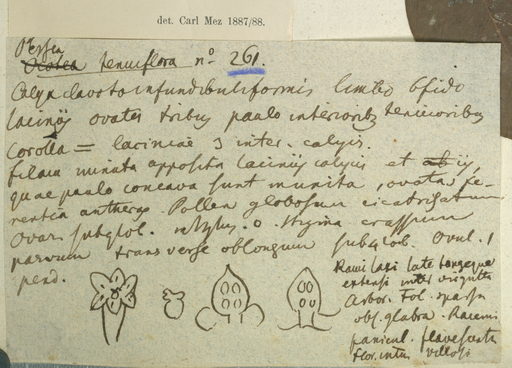 det. Carl Mez 1887/88.
Persea
Ocotea tenuiflora no. 261.
Calyx clavato infundibuliformis limbo 6fido
laciniis ovatis tribus paulo interioribus tenuioribus
Corolla = laciniae 3 inter. calycis.
filam minuta apposita laciniis calycis et ab iis,
quae paulo concava sunt munita, ovata fe-
rentia antheras. Pollen globosum cicatrisatum
Ovar. subglob. stylus. 0. Stigma crassum
parvum transverse oblongum subglob. Ovul. 1
pend.
Rami laxi late longeque
extensi inter virgulta
Arbor. Fol. sparsa
obl. glabra. Racemi
panicul. flavescentes
flor. intus villosi